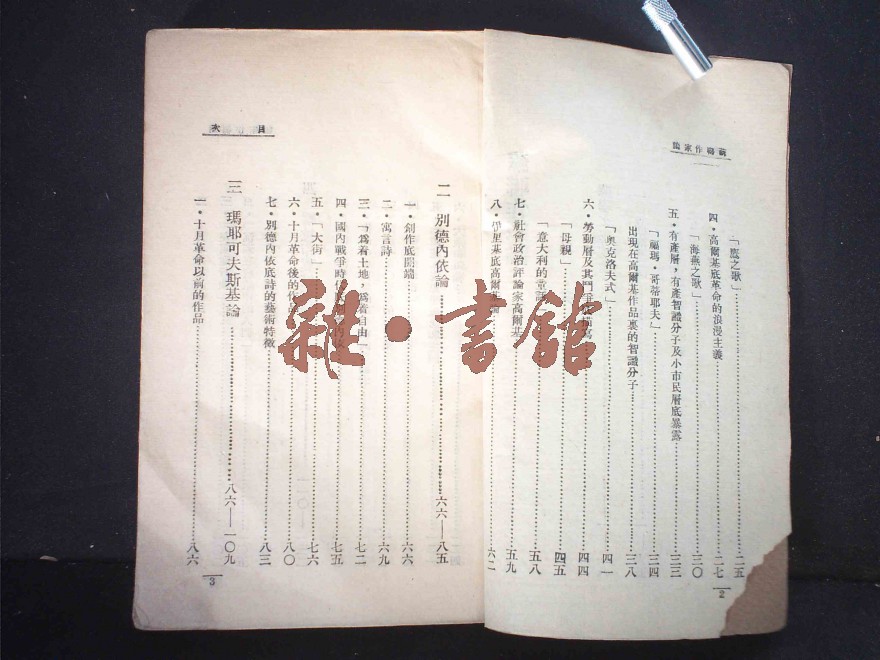 蘇聯作家論
「鷹之歌」……二五
四・高爾基底革命的浪漫主義……二七
「海燕之歌」……三〇
五・有產層，有產智識分子及小市民層底暴露……三三
「福瑪・哥蒂耶夫」……三四
出現在高爾基作品裏的智識分子……三八
「奧克洛夫式」……四一
六・勞動層及其鬥爭……四四
「母親」……四五
「意大利的童話……五八
七・社會政治評論家高爾基……五九
八・伊里基底高爾基論……六二
2
目次
二 別德內依論……六六—八五
一・創作底開端……六六
二・寓言詩……六九
三・「爲着土地，爲着自由」……七二
四・國內戰爭時……七五
五・「大街」……七六
六・十月革命後的作……八〇
七・別德內依底詩的藝術特徵……八三
三 瑪耶可夫斯基論……八六—一〇九
一・十月革命以前的作品……八六
3
雜・書館